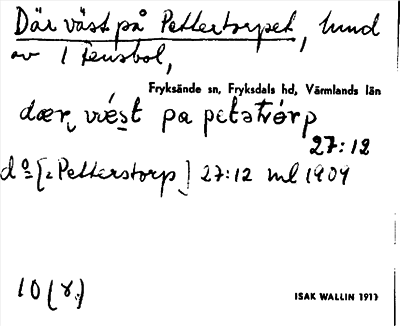 Där väst på Pettertorpet, lund
av 1 Tensbol,
Fryksände sn, Fryksdals hd, Värmlands län
dær vést pa petətórp
27:12
do [= Petterstorp] 27:12 ml 1909
10 (r.)
ISAK WALLIN 1911